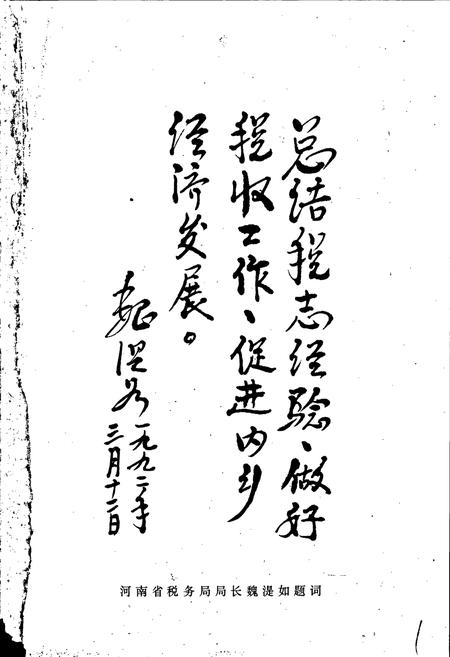 总结税志经验、做好
税收工作、促进内乡
经济发展。
魏湜如
一九九二年
三月十二日
河南省税务局局长魏湜如题词
1